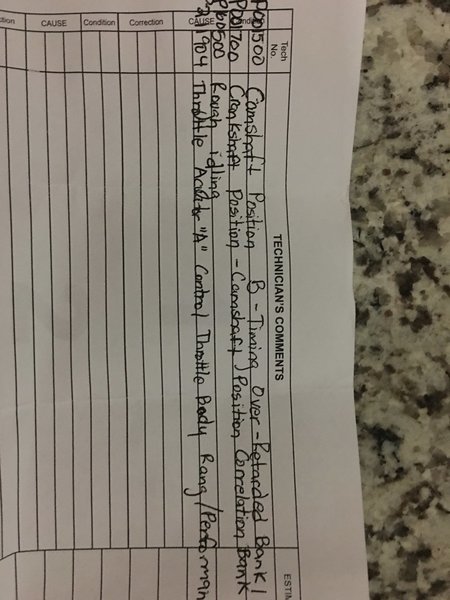 CAUSE Condition Correction CAUSE Tech
No.
TECHNICIAN'S COMMENTS
ESTIM
P001500 Camshaft Position B - Timing Over-Retarded Bank 1
P001700 Crankshaft Position - Camshaft Position Correlation Bank
Rough idling
Throttle Actuator "A" Control Throttle Body Rang/Performan